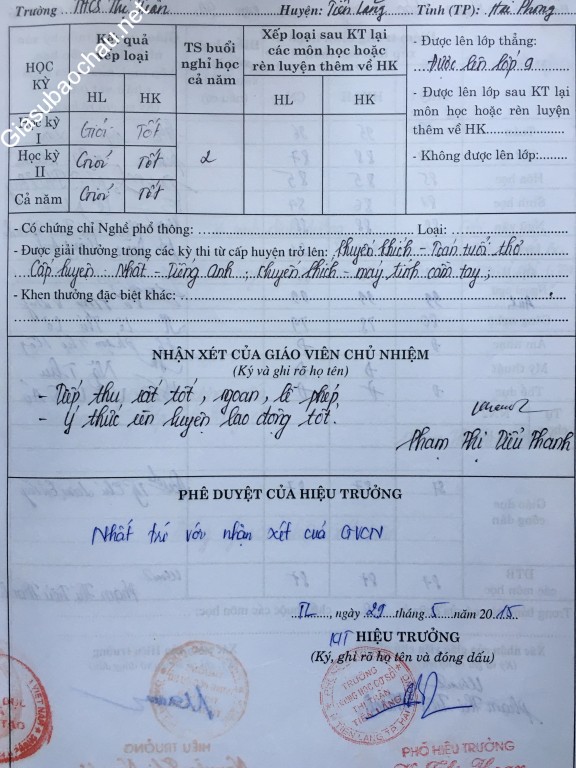 Trường THCS Thị Trấn Huyện: Tiên Lãng Tỉnh (TP): Hải Phòng
HỌC KỲ
Kết quả xếp loại
HL HK
TS buổi nghỉ học cả năm
Xếp loại sau KT lại các môn học hoặc rèn luyện thêm về HK
HL HK
Học kỳ I Giỏi Tốt
Học kỳ II Giỏi Tốt
Cả năm Giỏi Tốt
2
- Được lên lớp thẳng:
Được lên lớp 9
- Được lên lớp sau KT lại
môn học hoặc rèn luyện
thêm về HK
- Không được lên lớp:
- Có chứng chỉ Nghề phổ thông: Loại:
- Được giải thưởng trong các kỳ thi từ cấp huyện trở lên: Khuyến khích - Toán tuổi thơ
Cấp huyện: Nhất - Tiếng anh; Khuyến khích - máy tính cầm tay;
- Khen thưởng đặc biệt khác:
NHẬN XÉT CỦA GIÁO VIÊN CHỦ NHIỆM
(Ký và ghi rõ họ tên)
- Tiếp thu rất tốt, ngoan, lễ phép
- Ý thức rèn luyện lao động tốt.
Phạm Thị Tiểu Thanh
PHÊ DUYỆT CỦA HIỆU TRƯỞNG
Nhất trí với nhận xét của GVCN
TL, ngày 29 tháng 5 năm 2015
KT HIỆU TRƯỞNG
(Ký, ghi rõ họ tên và đóng dấu)
TRƯỜNG
TRUNG HỌC CƠ SỞ
THỊ TRẤN
TIÊN LÃNG
PHÓ HIỆU TRƯỞNG
Giasubaochau.net